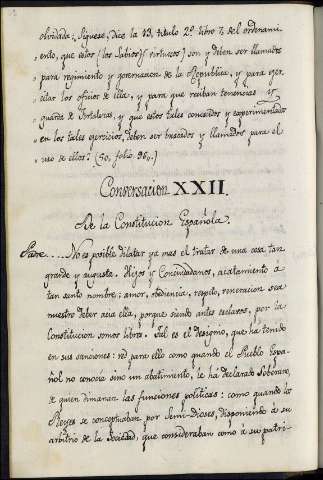 olvidada: Siguese, dice la 13, titulo 2º libro 7, del ordenami-
„ ento, que estos (los Sabios y virtuosos) son y deben ser llamados
„ para regimiento y governacion de la Republica, y para exer-
„ citar los oficios de ella, y para que reciban tenencias y
„ guarda de Fortalezas, y que estos tales conocidos y experimentados
„ en los tales exercicios, deben ser buscados y llamados para el
„ uso de ellos: (30, folio 96,,.)
Conversacion XXII.
De la Constitucion Española.
Padre.... No es posible dilatar ya mas el tratar de una cosa tan
grande y augusta. Hijos y Conciudadanos, acatamiento á
tan santo nombre: amor, obediencia, respeto, veneracion sea
nuestro deber acia ella, porque siendo antes esclavos, por la
Constitucion somos libres. Tal es el designio, que ha tenido
en sus sanciones: ved para ello como quando el Pueblo Espa-
ñol no conocia sino un abatimiento, le ha declarado Soberano,
de quien dimanan las funciones politicas: como quando los
Reyes se conceptuaban por Semi-Dioses, disponiendo á su
arbitrio de la Sociedad, que consideraban como á su patri-